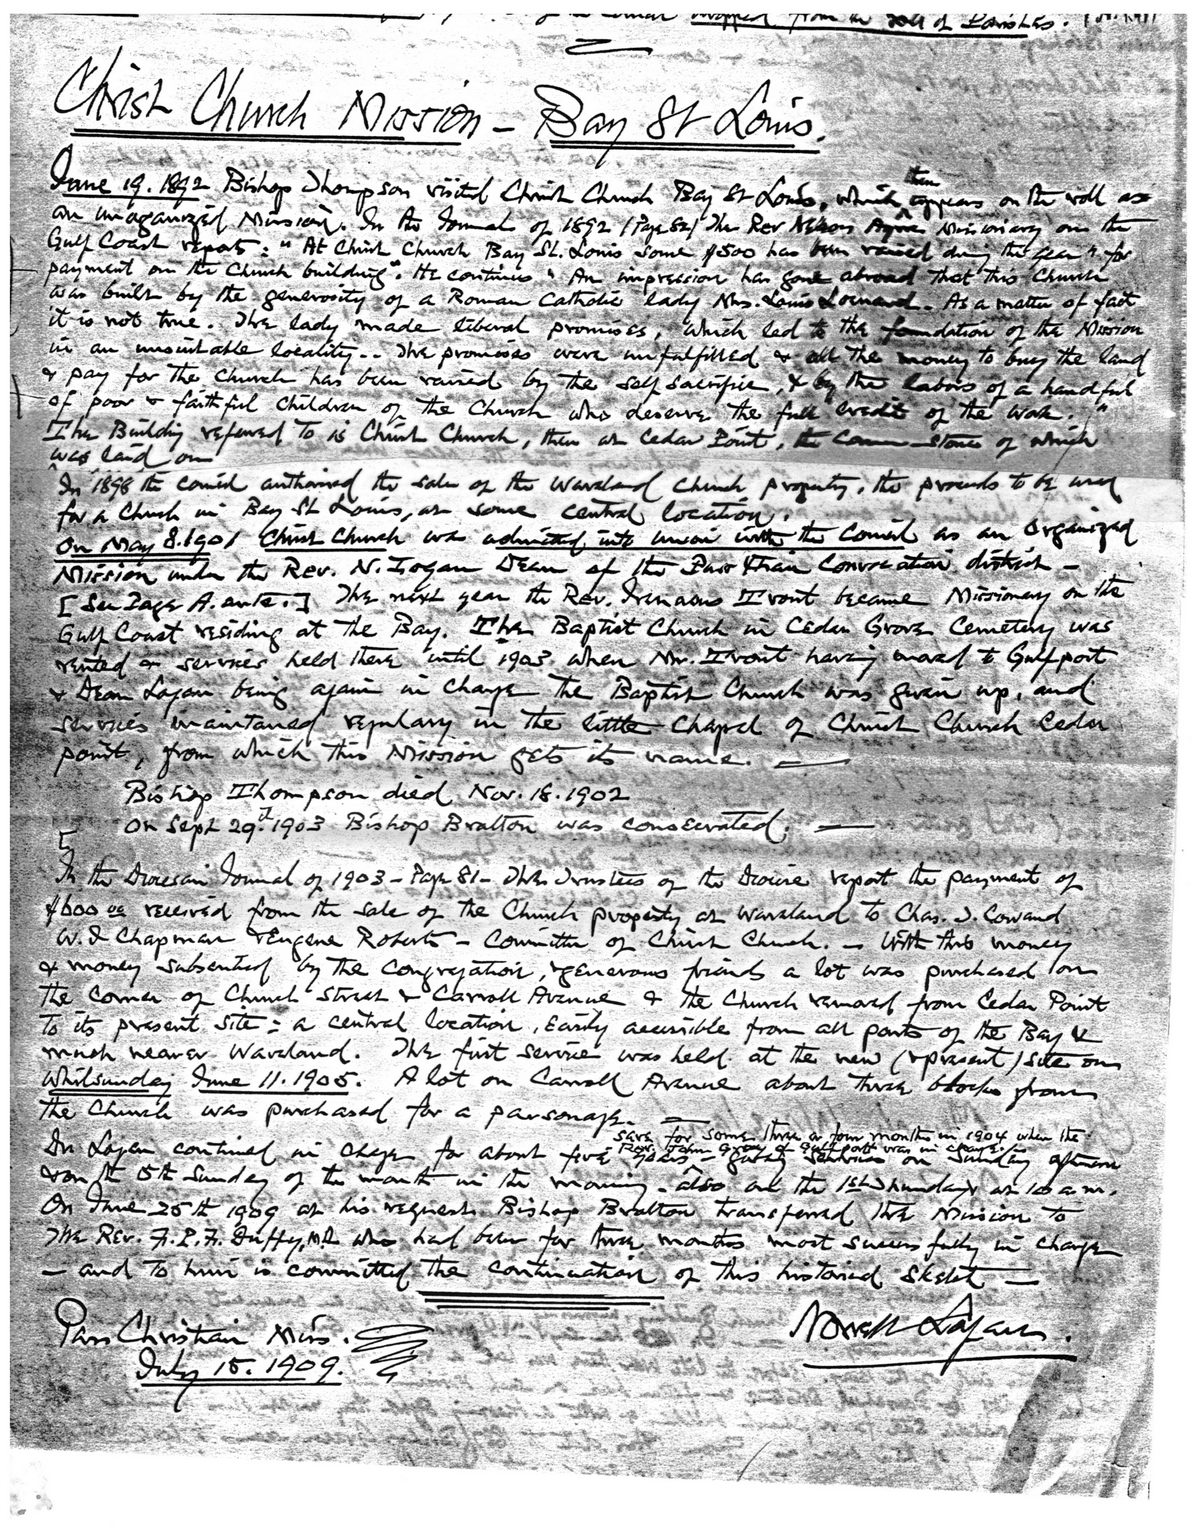 dropped from the roll of Parishes.
Christ Church Mission - Bay St Louis.
June 19. 1892 Bishop Thompson visited Christ Church Bay St Louis, which then appears on the roll as
an unorganized Mission. In the Journal of 1892 (Page 52) The Rev Nelson Ayres Missionary on the
Gulf Coast reports: "At Christ Church Bay St. Louis some $500 has been raised during the year for
payment on the Church building". He continues "An impression has gone abroad that this Church
was built by the generosity of a Roman Catholic lady Mrs. Louis Leonard. As a matter of fact
it is not true. The lady made liberal promises, which led to the foundation of the Mission
in an unsuitable locality.. The promises were unfulfilled & all the money to buy the land
& pay for the Church has been raised by the self sacrifice, & by the labors of a handful
of poor & faithful children of the Church who deserve the full credit of the work."
The Building referred to is Christ Church, then at Cedar Point, the corner-stone of which
was laid on
In 1898 the council authorised the sale of the Waveland Church property, the proceeds to be used
for a Church in Bay St Louis, at some central location.
On May 8. 1901 Christ Church was admitted into union with the Council as an Organized
Mission under the Rev. N. Logan Dean of the Pass Christian Convocation district -
[See Page A. ante.] The next year the Rev. Irenaeus Trout became Missionary on the
Gulf Coast residing at the Bay. The Baptist Church in Cedar Grove Cemetery was
rented & services held there until 1903 when Mr. Trout having moved to Gulfport
& Dean Logan being again in charge the Baptist Church was given up, and
services maintained regulary in the little Chapel of Christ Church Cedar
point, from which this Mission gets its name.
Bishop Thompson died Nov. 18. 1902
On Sept 29th. 1903 Bishop Bratton was consecrated.
In the Diocesan Journal of 1903 - Page 81 - The Trustees of the Diocese report the payment of
$600 00 received from the sale of the Church property at Waveland to Chas. J. Cowand
W. I Chapman & Eugene Roberts - Committee of Christ Church. - With this money
& money subscribed by the congregation, & generous friends a lot was purchased on
the corner of Church Street & Carroll Avenue & the Church removed from Cedar Point
to its present site: a central location, easily accessible from all parts of the Bay &
much nearer Waveland. The first service was held at the new (& present) site on
Whitsunday June 11. 1905. A lot on Carroll Avenue about three blocks from
the Church was purchased for a parsonage.
save for some three or four months in 1904 when the
Rev. John of Gulfport was in charge
Dr Logan continued in charge for about five years giving services on Sunday afternoon
& on the 5th Sunday of the month in the morning - also on the 1st Thursdays at 10 a.m.
On June 25th 1909 at his request Bishop Bratton transferred the Mission to
The Rev. F.P.F. Duffy, M.D. who had been for three months most successfully in charge
- and to him is committed the continuation of this historical sketch -
Nowell Logan.
Pass Christian Miss.
July 15. 1909.